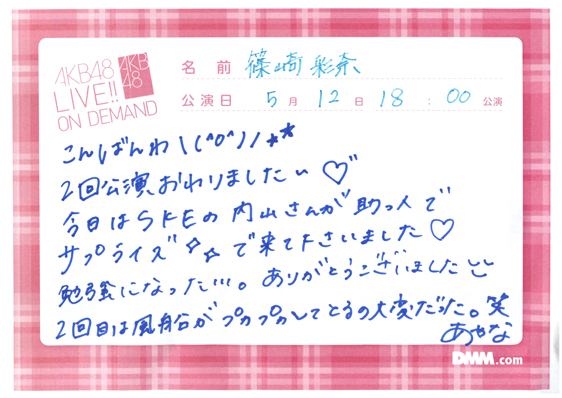 AKB48
LIVE!!
ON DEMAND
AKB
48
名前 篠崎彩奈
公演日 5月12日 18:00公演
こんばんわ\(^o^)/☆★
2回公演、おわりましたぃ♡
今日はSKEの内山さんが助っ人で
サプライズ☆☆で来て下さいました♡
勉強になった…。ありがとうございました
2回目は風船がプカプカしてとるの大変だった。笑
あやな
DMM.com